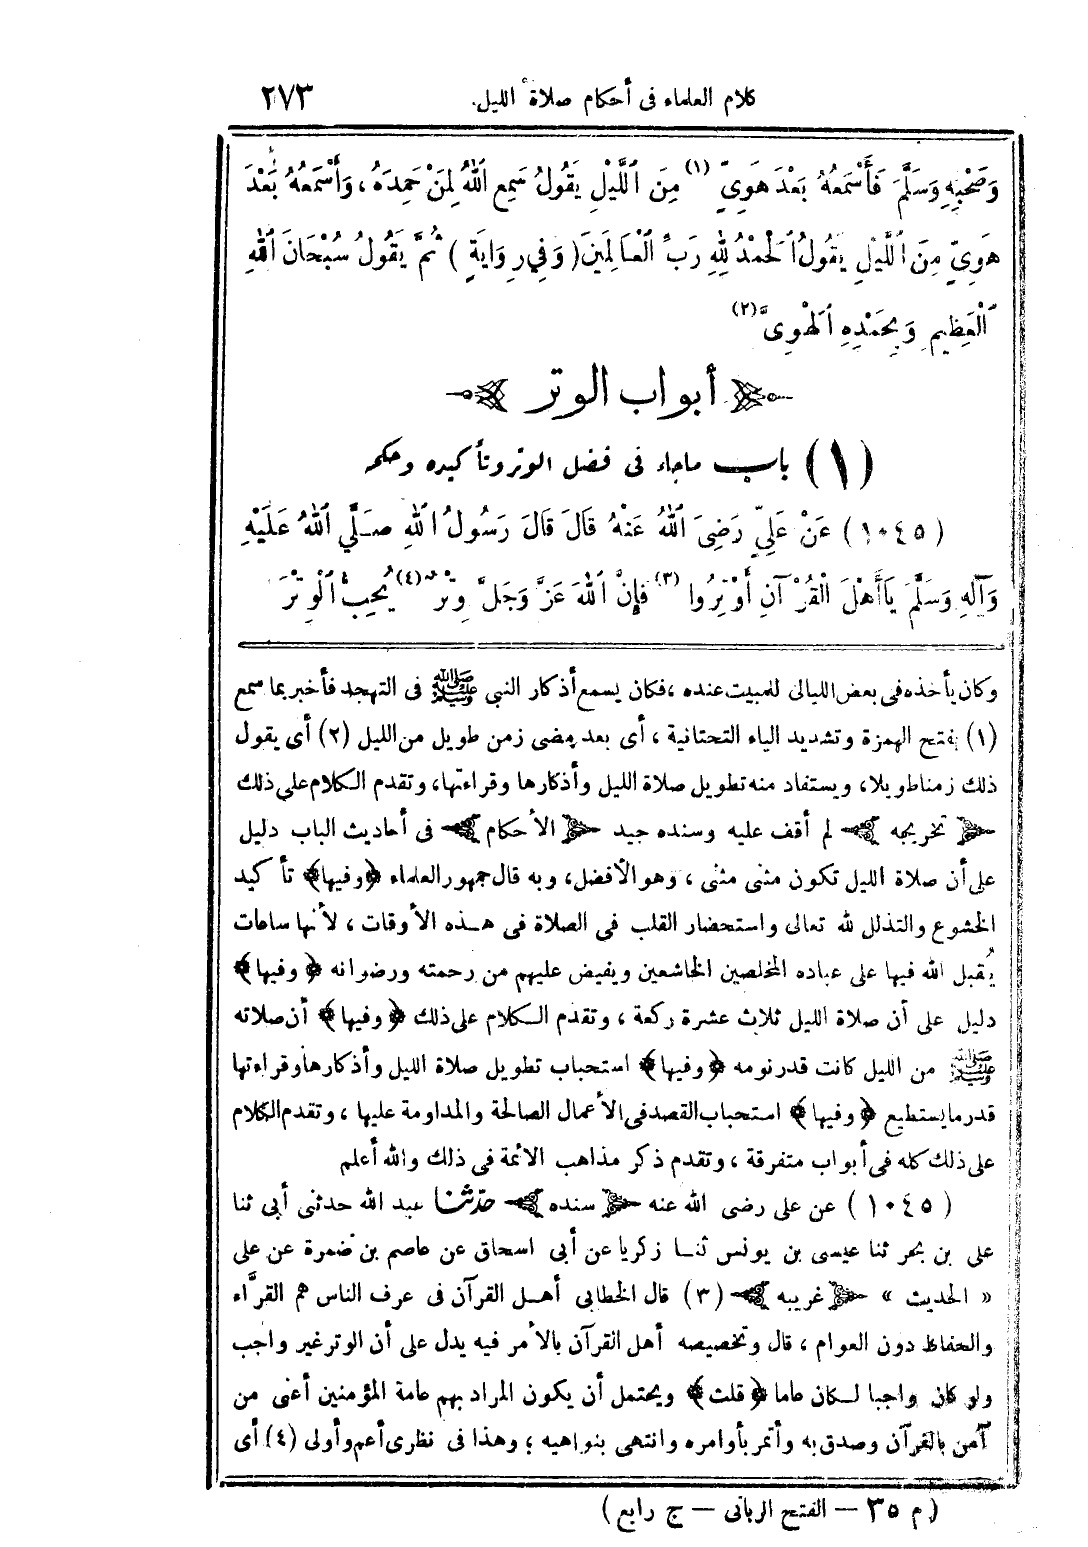 كلام العلماء فى أحكام صلاة الليل. ٢٧٣
وَصَحْبِهِ وَسَلَّمَ فَأَسْمَعُهُ بَعْدَ هَوِيٍّ (١) مِنَ اللَّيْلِ يَقُولُ سَمِعَ اللهُ لِمَنْ حَمِدَهُ ، وَأَسْمَعُهُ بَعْدَ
هَوِيٍّ مِنَ اللَّيْلِ يَقُولُ الْحَمْدُ لِلهِ رَبِّ الْعَالَمِينَ ( وَفِي رِوَايَةٍ ) ثُمَّ يَقُولُ سُبْحَانَ اللهِ
الْعَظِيمِ وَبِحَمْدِهِ الْهَوِيَّ (٢)
أبواب الوتر
(١) باب ماجاء فى فضل الوتر وتأكيده وحكمه
(١٠٤٥) عَنْ عَلِيٍّ رَضِيَ اللهُ عَنْهُ قَالَ قَالَ رَسُولُ اللهِ صَلَّي اللهُ عَلَيْهِ
وَآلِهِ وَسَلَّمَ يَاأَهْلَ الْقُرْآنِ أَوْتِرُوا (٣) فَإِنَّ اللهَ عَزَّ وَجَلَّ وِتْرٌ (٤) يُحِبُّ الْوِتْرَ
وكان يأخذه فى بعض الليالى للمبيت عنده ، فكان يسمع أذكار النبى ﷺ فى التهجد فأخبر بما سمع
(١) بفتح الهمزة وتشديد الياء التحتانية ، أى بعد مضى زمن طويل من الليل (٢) أى يقول
ذلك زمنا طويلا ، ويستفاد منه تطويل صلاة الليل وأذكارها وقراءتها ، وتقدم الكلام على ذلك
تخريجه لم أقف عليه وسنده جيد الأحكام فى أحاديث الباب دليل
على أن صلاة الليل تكون مثنى مثنى ، وهو الأفضل ، وبه قال جمهور العلماء ﴿وفيها﴾ تأكيد
الخشوع والتذلل لله تعالى واستحضار القلب فى الصلاة فى هذه الأوقات ، لأنها ساعات
يُقبل الله فيها على عباده المخلصين الخاشعين ويفيض عليهم من رحمته ورضوانه ﴿ وفيها ﴾
دليل على أن صلاة الليل ثلاث عشرة ركعة ، وتقدم الكلام على ذلك ﴿ وفيها ﴾ أن صلاته
ﷺ من الليل كانت قدر نومه ﴿ وفيها ﴾ استحباب تطويل صلاة الليل وأذكارها وقراءتها
قدر ما يستطيع ﴿ وفيها ﴾ استحباب القصد فى الأعمال الصالحة والمداومة عليها ، وتقدم الكلام
على ذلك كله فى أبواب متفرقة ، وتقدم ذكر مذاهب الأئمة فى ذلك والله أعلم
(١٠٤٥) عن على رضى الله عنه سنده حدثنا عبد الله حدثنى أبى ثنا
على بن بحر ثنا عيسى بن يونس ثنا زكريا عن أبى اسحاق عن عاصم بن ضمرة عن على
« الحديث » غريبه (٣) قال الخطابى أهل القرآن فى عرف الناس هم القرَّاء
والحفاظ دون العوام ، قال وتخصيصه أهل القرآن بالأمر فيه يدل على أن الوتر غير واجب
ولو كان واجبا لكان عاما ﴿ قلت ﴾ ويحتمل أن يكون المراد بهم عامة المؤمنين أعنى من
آمن بالقرآن وصدق به وأتمر بأوامره وانتهى بنواهيه ؛ وهذا فى نظرى أعم وأولى (٤) أى
(م ٣٥ — الفتح الربانى — ج رابع)